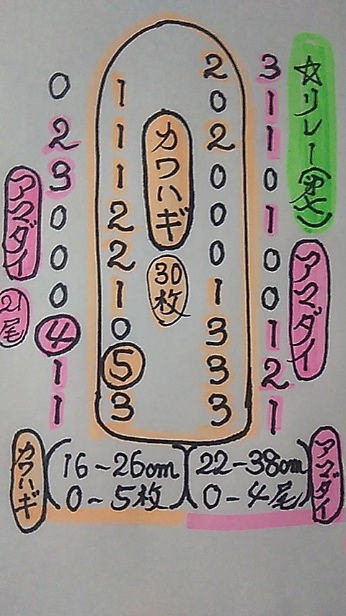 ☆リレー
アマダイ
3
1
1
0
1
0
0
1
2
1
2
0
2
0
0
0
1
3
3
3
カワハギ
30枚
1
1
1
2
2
1
0
5
3
0
2
3
0
0
0
4
1
1
アマダイ
21尾
カワハギ
(16-26cm
0-5枚)
(22-38cm
0-4尾)
アマダイ